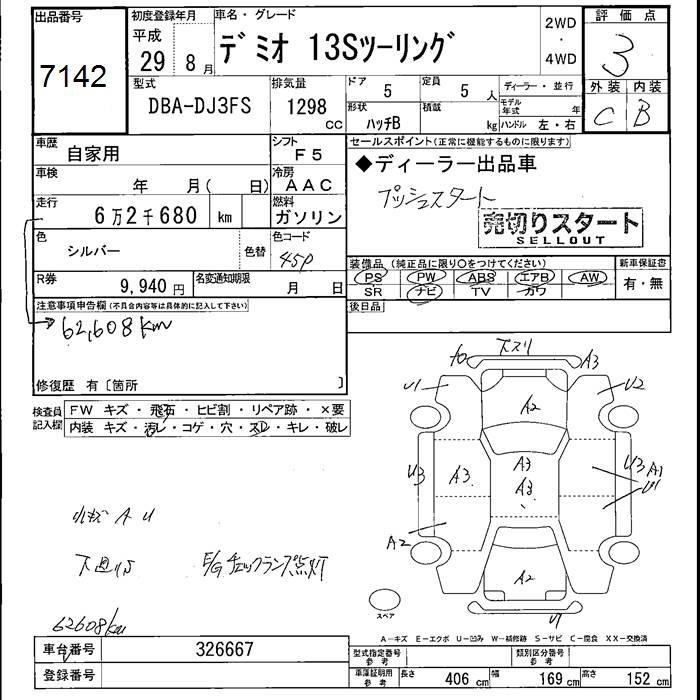 出品番号
7142
初度登録年月
平成
29年 8月
車名・グレード
デミオ 13Sツーリング
2WD
・
4WD
評価点
3
外装 内装
C B
型式
DBA-DJ3FS
排気量
1298
CC
ドア
5
定員
5 人
ディーラー・並行
形状
ハッチB
積載
kg
モデル年式
年
ハンドル 左・右
車歴
自家用
シフト
F5
車検
年 月( 日)
冷房
AAC
走行
6万2千680 km
燃料
ガソリン
色
シルバー
色替
色コード
45P
R券
9,940円
名変通知期限
月 日
セールスポイント(正常に機能するものに限ります)
◆ディーラー出品車
プッシュスタート
売切りスタート
SELLOUT
装備品 (純正品に限り○をつけてください)
新車保証書
PS PW ABS エアB AW
有・無
SR ナビ TV カワ
後日品
注意事項申告欄(不具合内容等は具体的に記入して下さい)
62,608km
修復歴 有〔箇所 〕
検査員
記入欄
FW キズ・飛石・ヒビ割・リペア跡・×要
内装 キズ・汚レ・コゲ・穴・スレ・キレ・破レ
小キズ A U
下廻りS
E/Gチェックランプ点灯
62608km
下スリ
A3
U1
U2
A2
U3
A3
A3
A3
U3 A1
U1
A2
A2
スペア
A−キズ E−エクボ U−凹み W−補修跡 S−サビ C−腐食 XX−交換済
車台番号
326667
登録番号
型式指定番号
参考
類別区分番号
参考
車庫証明用
参考
長さ 406 cm 幅 169 cm 高さ 152 cm